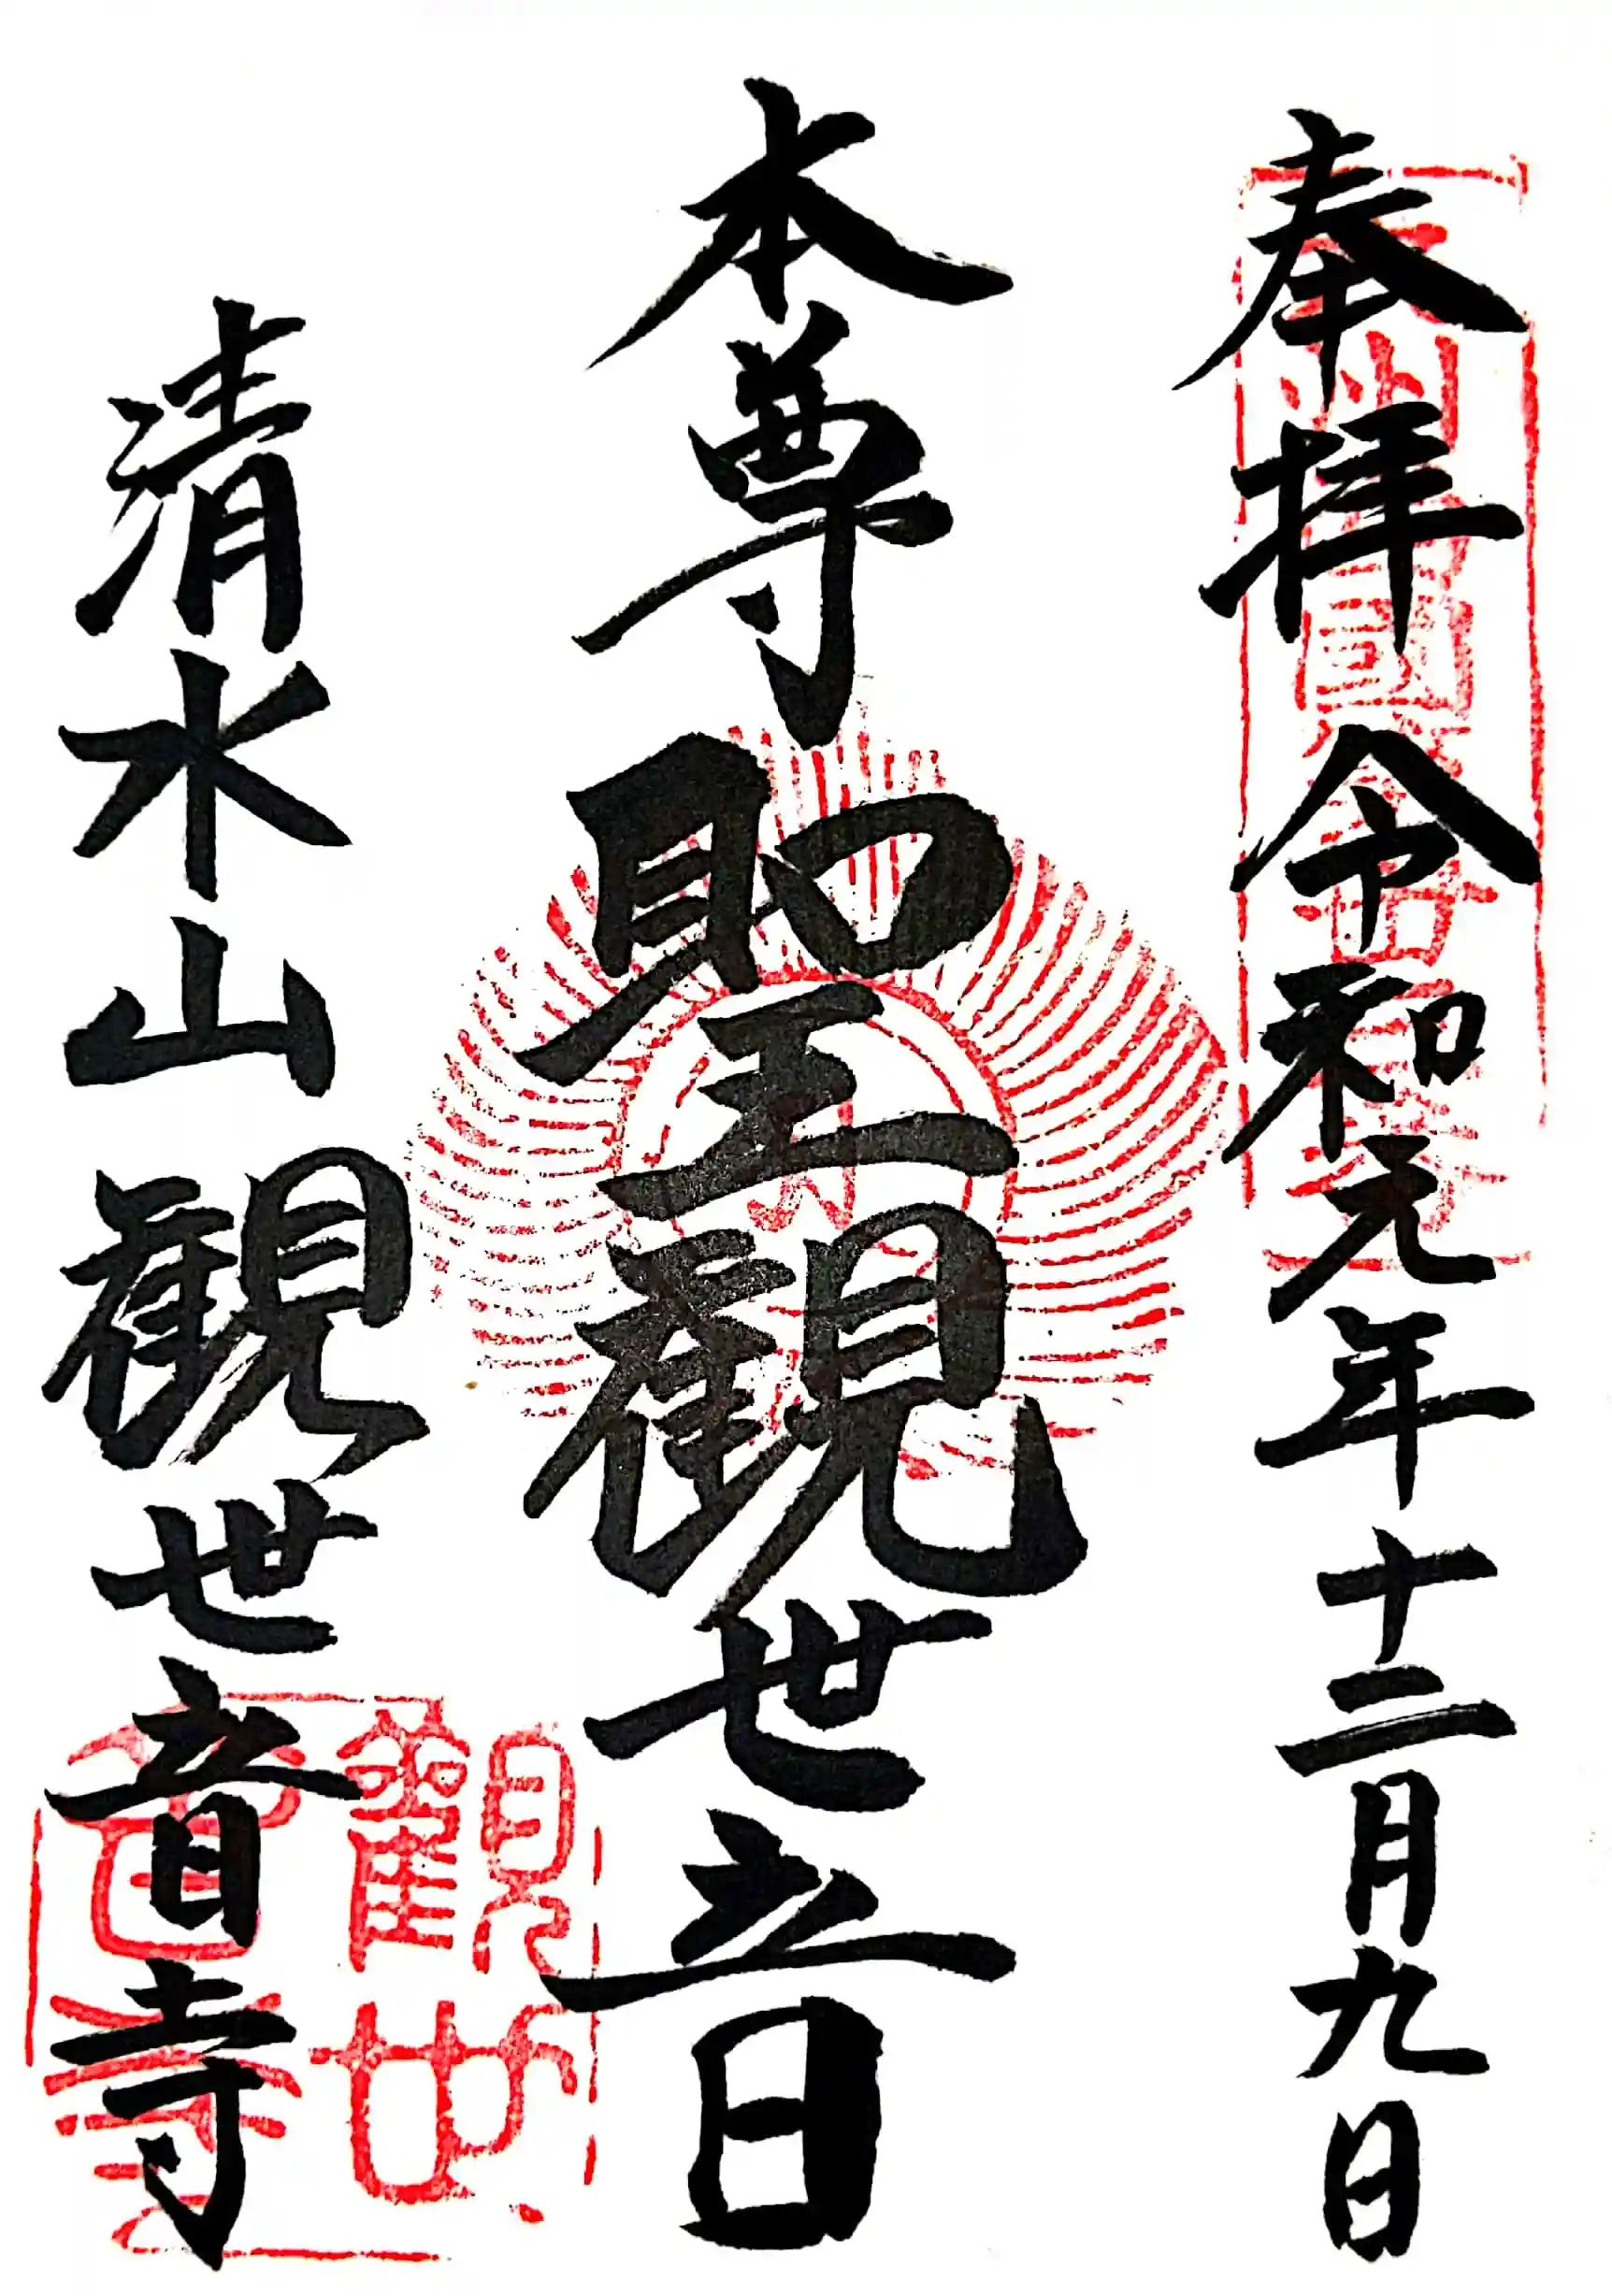 奉拝 令和元年十二月九日
本尊 聖観世音
清水山観世音寺
觀世音寺